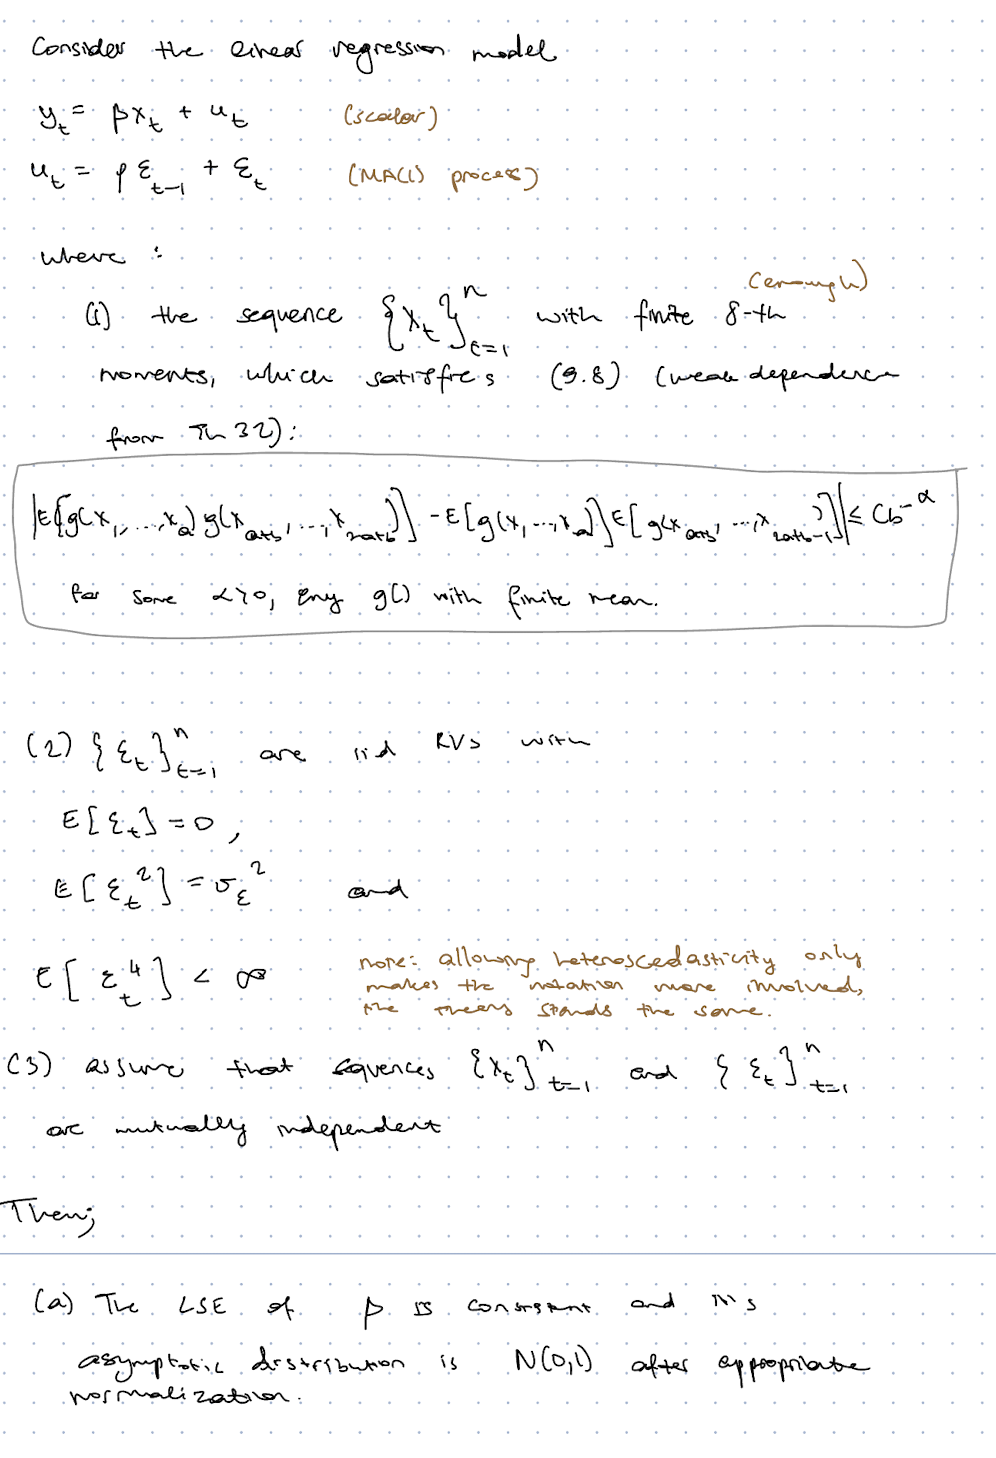 Consider the linear regression model
y_t = βx_t + u_t (scalar)
u_t = ρ ε_{t-1} + ε_t (MA(1) process)
where :
(enough)
(1) the sequence {x_t}_{t=1}^n with finite 8-th
moments, which satisfies (9.8) (weak dependence
from Th 32):
|E[g(x_1, ..., x_a) g(x_{a+b}, ..., x_{2a+b})] - E[g(x_1, ..., x_a)] E[g(x_{a+b}, ..., x_{2a+b-1})]| ≤ Cb^{-α}
for some α>0, any g() with finite mean.
(2) {ε_t}_{t=1}^n are iid RVs with
E[ε_t] = 0,
E[ε_t^2] = σ_ε^2 and
E[ε_t^4] < ∞
note: allowing heteroscedasticity only
makes the notation more involved,
the theory stands the same.
(3) assume that sequences {x_t}_{t=1}^n and {ε_t}_{t=1}^n
are mutually independent
Then;
(a) The LSE of β is consistent and its
asymptotic distribution is N(0,1) after appropriate
normalization.